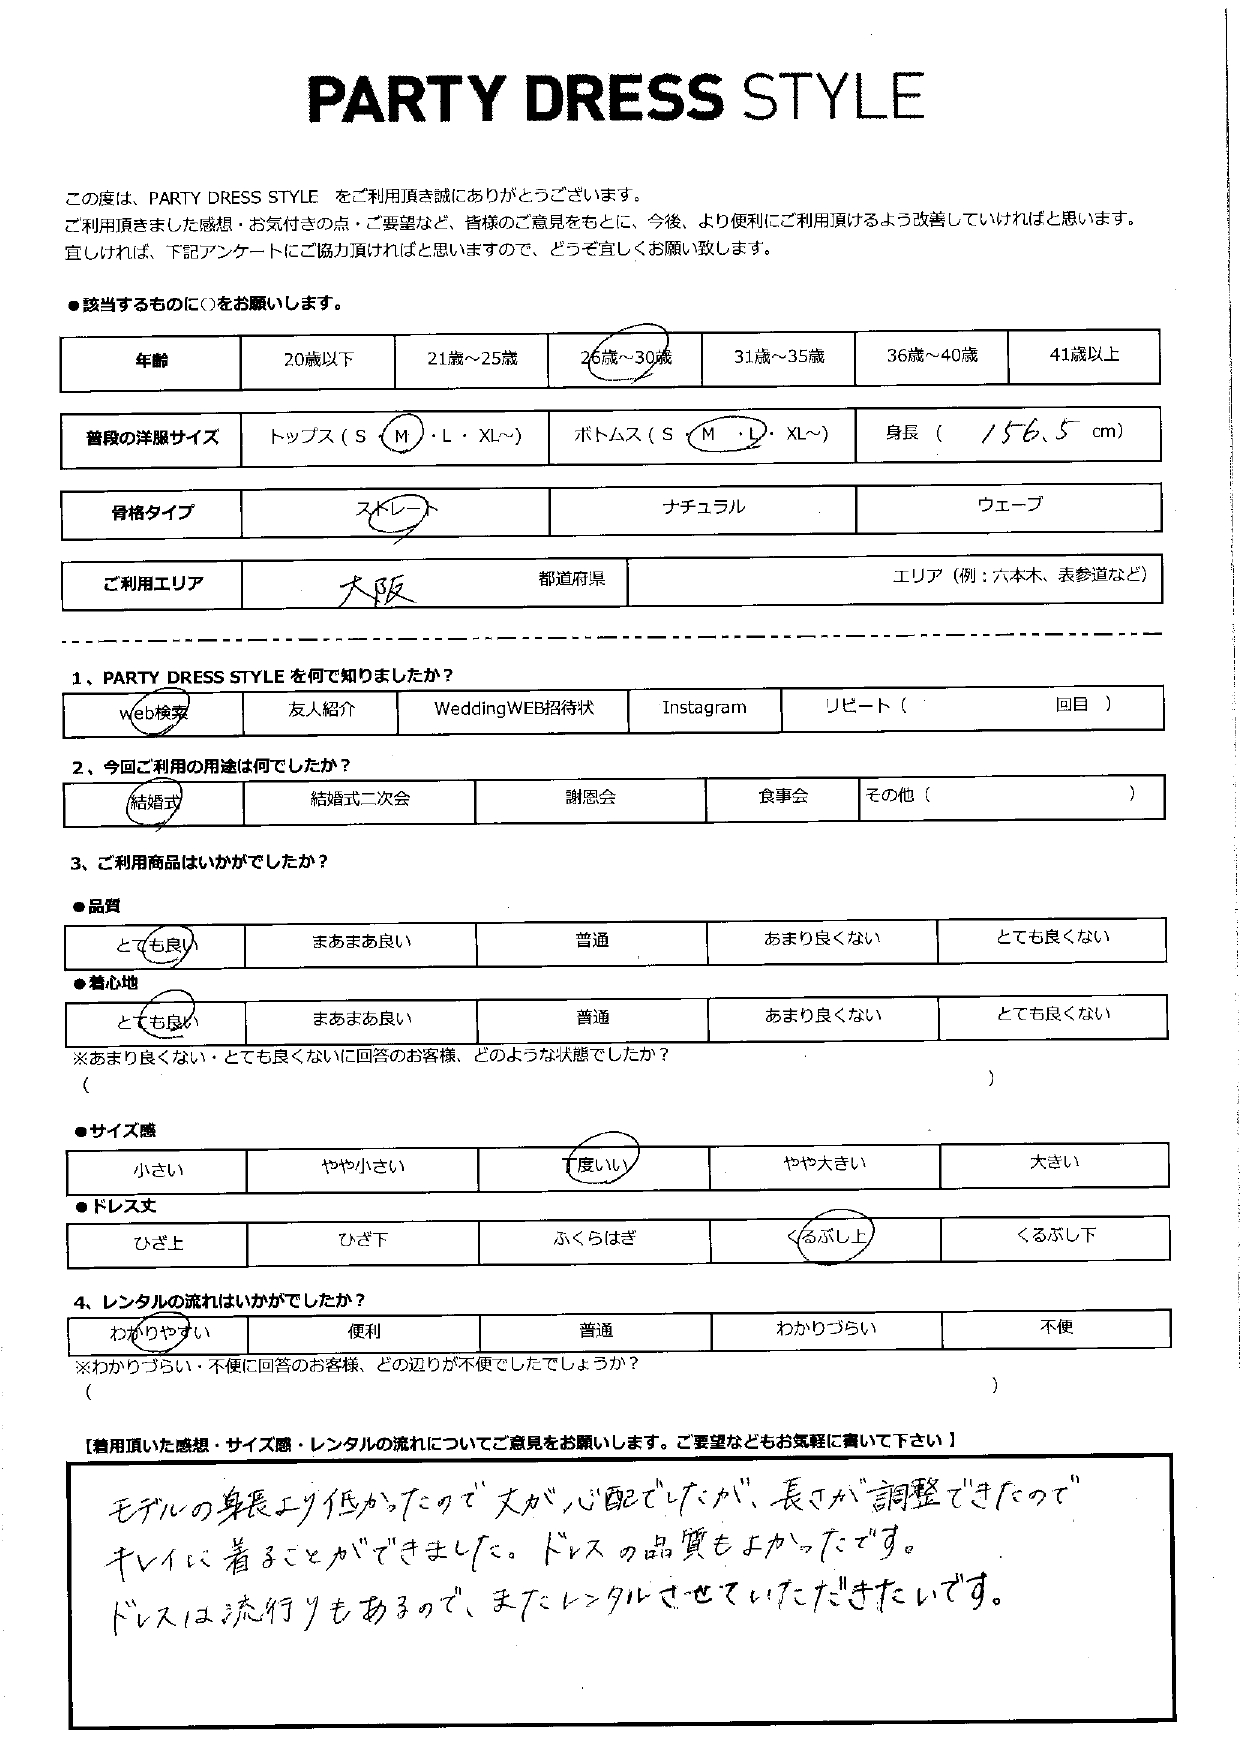 PARTY DRESS STYLE
この度は、PARTY DRESS STYLE をご利用頂き誠にありがとうございます。
ご利用頂きました感想・お気付きの点・ご要望など、皆様のご意見をもとに、今後、より便利にご利用頂けるよう改善していければと思います。
宜しければ、下記アンケートにご協力頂ければと思いますので、どうぞ宜しくお願い致します。
●該当するものに○をお願いします。
年齢 20歳以下 21歳～25歳 26歳～30歳 31歳～35歳 36歳～40歳 41歳以上
普段の洋服サイズ トップス（ S ・ M ・ L ・ XL～） ボトムス（ S ・ M ・ L ・ XL～） 身長 （ 156.5 cm）
骨格タイプ ストレート ナチュラル ウェーブ
ご利用エリア 大阪 都道府県 エリア（例：六本木、表参道など）
1、PARTY DRESS STYLE を何で知りましたか？
web検索 友人紹介 WeddingWEB招待状 Instagram リピート（ 回目 ）
2、今回ご利用の用途は何でしたか？
結婚式 結婚式二次会 謝恩会 食事会 その他（ ）
3、ご利用商品はいかがでしたか？
●品質
とても良い まあまあ良い 普通 あまり良くない とても良くない
●着心地
とても良い まあまあ良い 普通 あまり良くない とても良くない
※あまり良くない・とても良くないに回答のお客様、どのような状態でしたか？
（ ）
●サイズ感
小さい やや小さい 丁度いい やや大きい 大きい
●ドレス丈
ひざ上 ひざ下 ふくらはぎ くるぶし上 くるぶし下
4、レンタルの流れはいかがでしたか？
わかりやすい 便利 普通 わかりづらい 不便
※わかりづらい・不便に回答のお客様、どの辺りが不便でしたでしょうか？
（ ）
【着用頂いた感想・サイズ感・レンタルの流れについてご意見をお願いします。ご要望などもお気軽に書いて下さい】
モデルの身長より低かったので丈が心配でしたが、長さが調整できたので
キレイに着ることができました。ドレスの品質もよかったです。
ドレスは流行りもあるので、またレンタルさせていただきたいです。